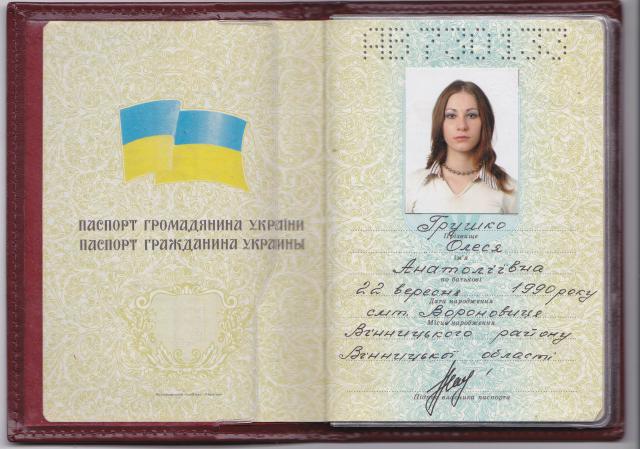 ПАСПОРТ ГРОМАДЯНИНА УКРАЇНИ
ПАСПОРТ ГРАЖДАНИНА УКРАИНЫ
АВ 730133
Грушко
Прізвище
Олеся
Ім'я
Анатоліївна
по батькові
22 вересня 1990 року
Дата народження
смт. Вороновиця
Місце народження
Вінницького району
Вінницької області
Підпис власника паспорта